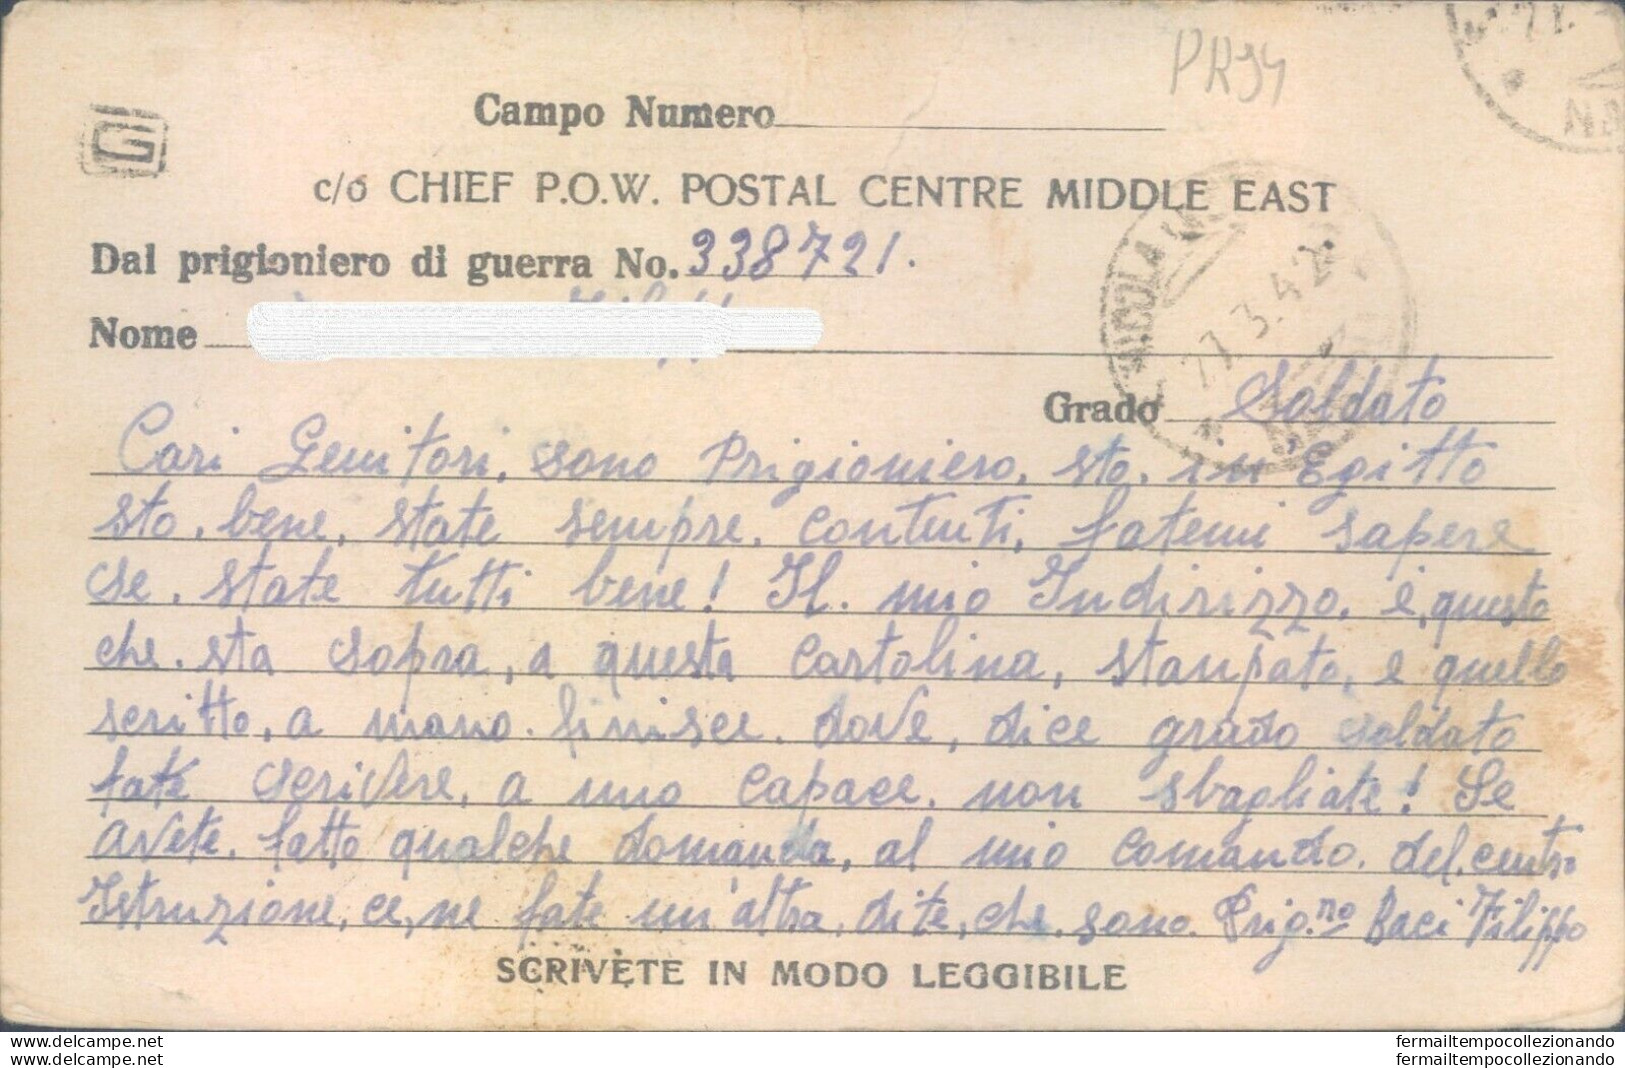 PR94
Campo Numero
c/o CHIEF P.O.W. POSTAL CENTRE MIDDLE EAST
Dal prigioniero di guerra No. 338721.
Nome
27.3.42
Grado Soldato
Cari Genitori, sono Prigioniero, sto, in Egitto
sto, bene, state sempre, contenti, fatemi sapere
se, state tutti bene! Il, mio Indirizzo, è, questo
che, sta sopra, a questa cartolina, stanpato, e quello
scritto, a mano. finisce, dove, dice grado soldato
fate scrivere, a uno capace, non sbagliate! Se
avete, fatto qualche domanda, al mio comando. del, centro
Istruzione, ce, ne fate un'altra, dite, che, sono. Prig.no Baci Filippo
SCRIVETE IN MODO LEGGIBILE
www.delcampe.net
www.delcampe.net
fermailtempocollezionando
fermailtempocollezionando